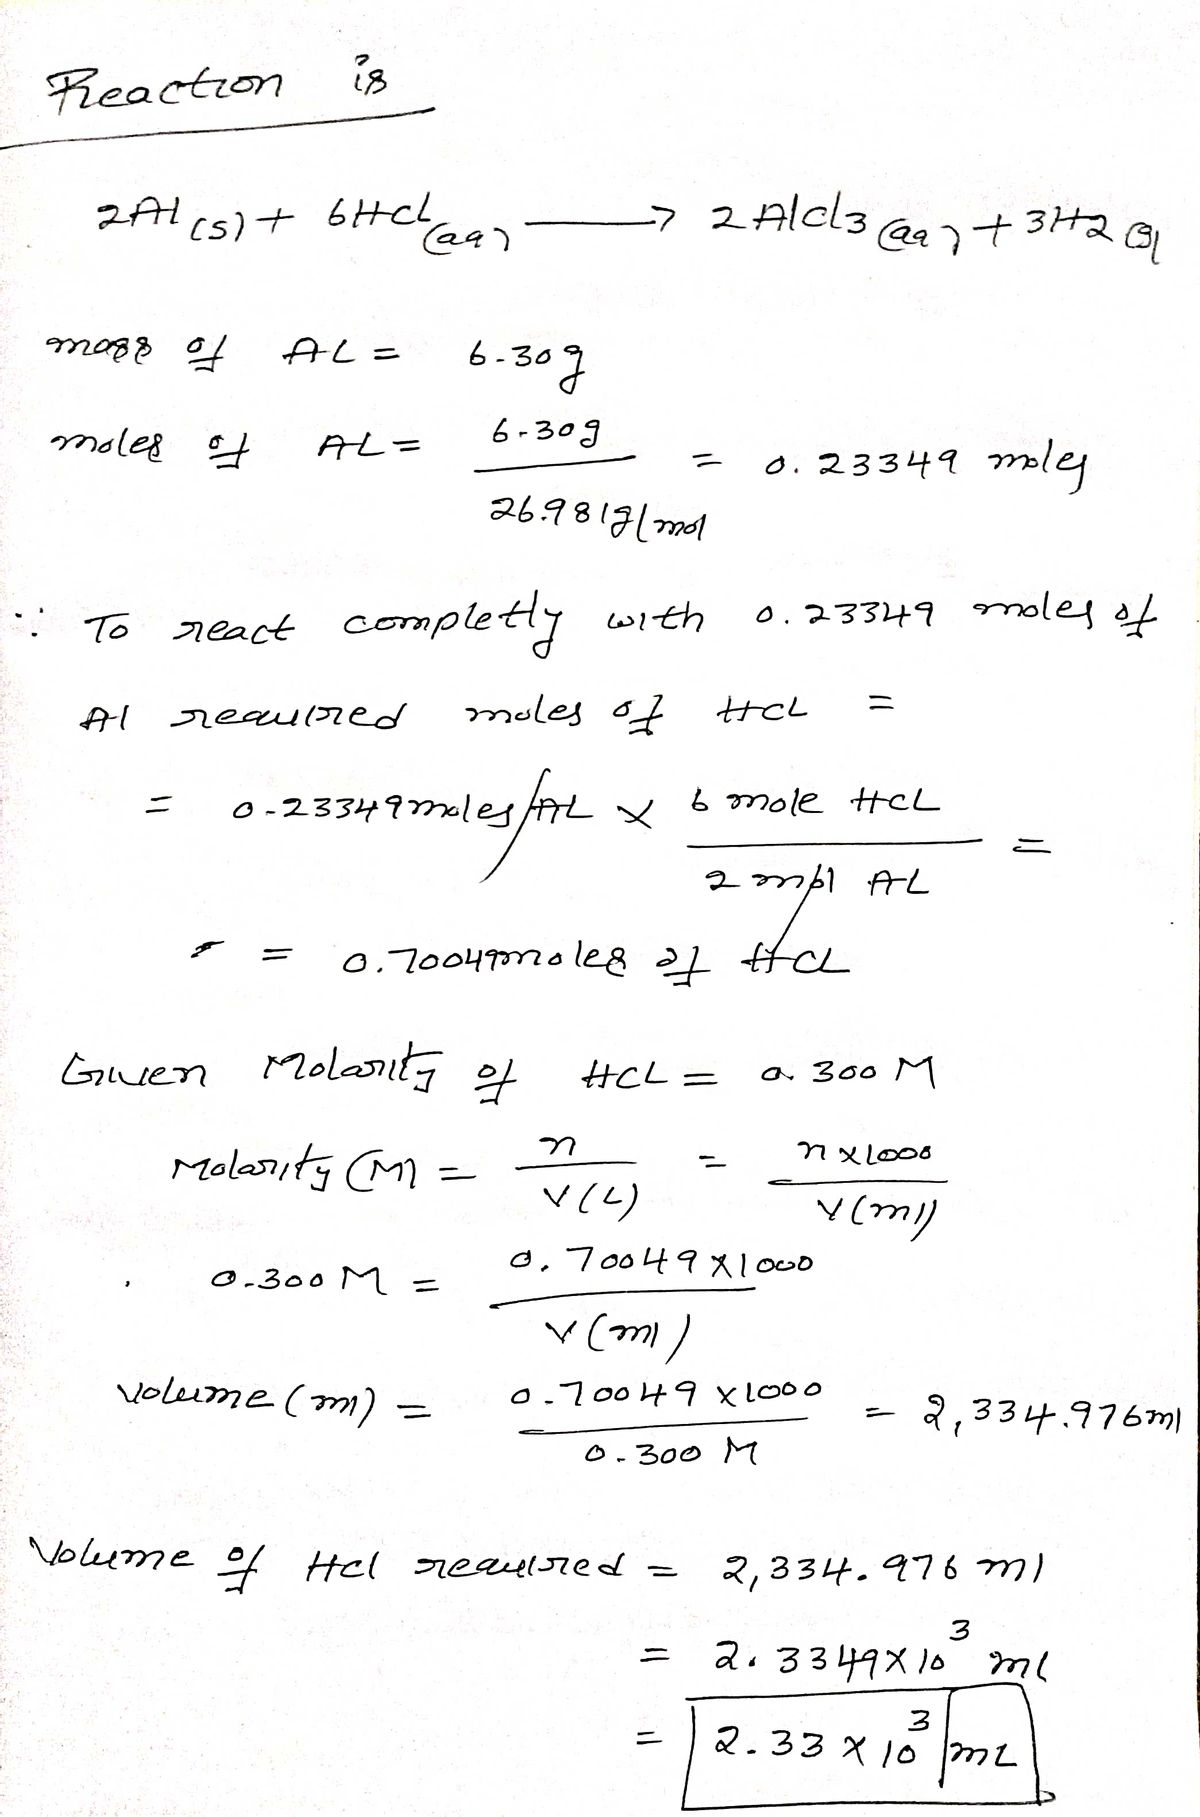 Reaction is
2Al(s) + 6HCl(aq) → 2AlCl3(aq) + 3H2(g)
mass of AL = 6.30g
moles of AL = 6.30g / 26.981g/mol = 0.23349 moles
∵ To react completly with 0.23349 moles of
Al required moles of HCL =
= 0.23349 moles AL × 6 mole HCL / 2 mol AL =
= 0.70049 moles of HCL
Given Molarity of HCL = 0.300 M
Molarity (M) = n / V(L) = n×1000 / V(ml)
0.300 M = 0.70049×1000 / V(ml)
Volume (ml) = 0.70049×1000 / 0.300 M = 2,334.976 ml
Volume of Hcl required = 2,334.976 ml
= 2.3349×10³ mL
= 2.33×10³ mL